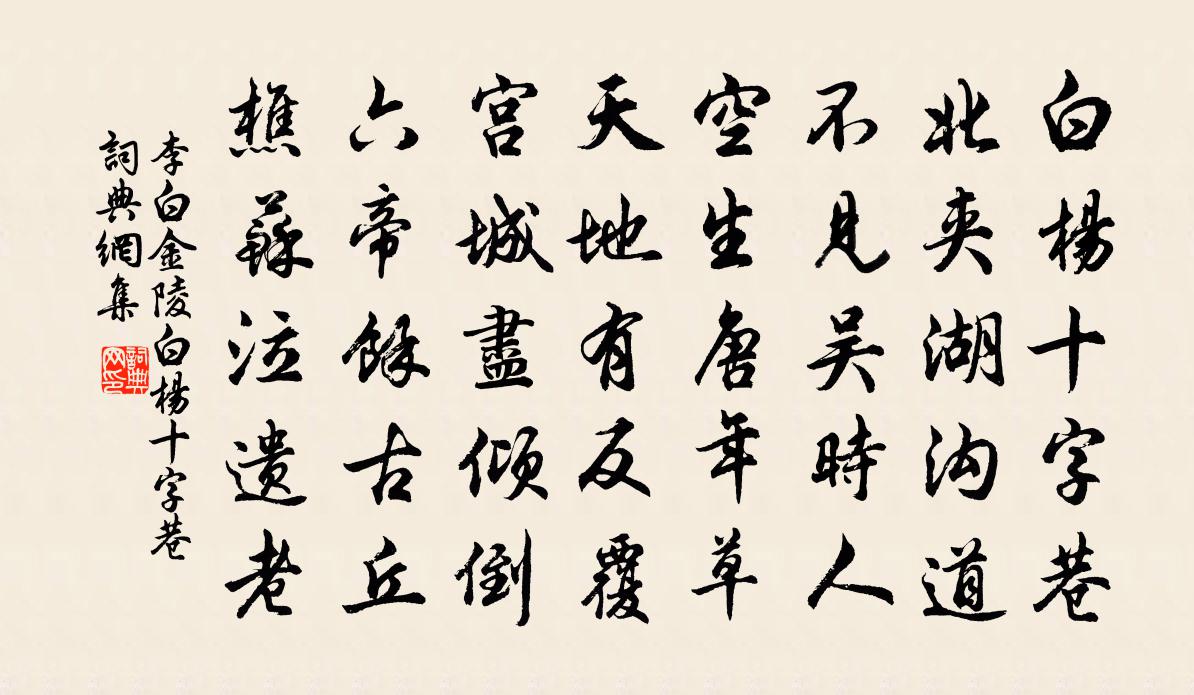 白楊十字巷
北夾湖沟道
不見吴時人
空生唐年草
天地有反覆
宫城盡傾倒
六帝餘古丘
樵蘇泣遺老
李白金陵白楊十字巷
詞典網集
詞典
网印